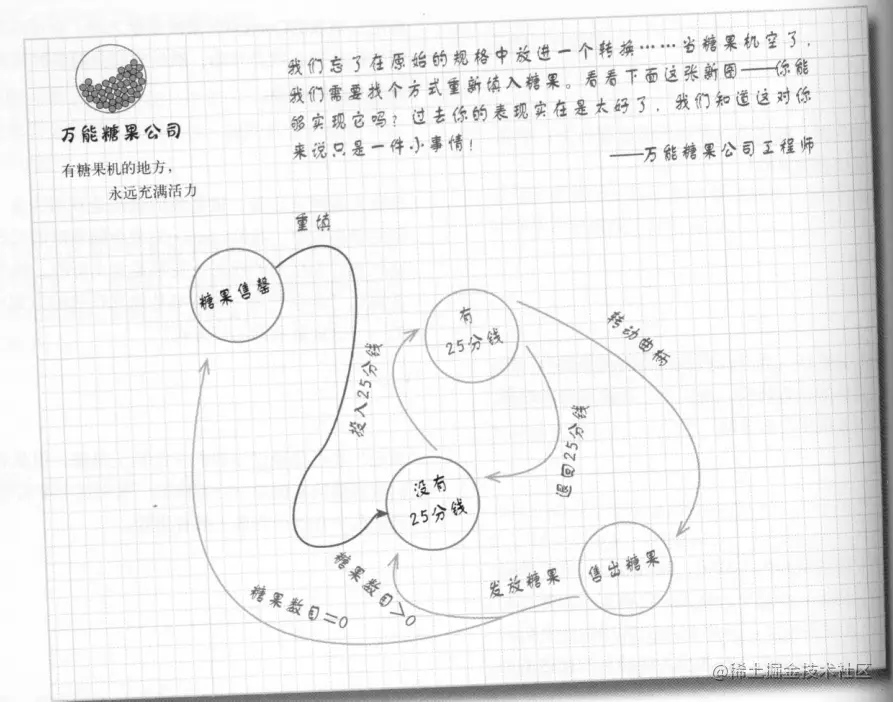 我们忘了在原始的规格中放进一个转换……当糖果机空了，
我们需要找个方式重新填入糖果。看看下面这张新图——你能
够实现它吗？过去你的表现实在是太好了，我们知道这对你
来说只是一件小事情！
——万能糖果公司工程师
万能糖果公司
有糖果机的地方，
永远充满活力
重填
糖果售罄
有
25分钱
转动曲柄
投入25分钱
退回25分钱
没有
25分钱
售出糖果
发放糖果
糖果数目>0
糖果数目=0
@稀土掘金技术社区